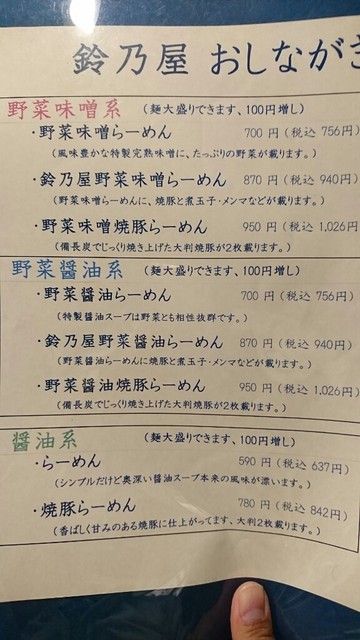 鈴乃屋 おしながき
野菜味噌系 (麺大盛りできます、100円増し)
・野菜味噌らーめん 700 円(税込 756円)
(風味豊かな特製完熟味噌に、たっぷりの野菜が載ります。)
・鈴乃屋野菜味噌らーめん 870 円(税込 940円)
(野菜味噌らーめんに、焼豚と煮玉子・メンマなどが載ります。)
・野菜味噌焼豚らーめん 950 円(税込 1,026円
(備長炭でじっくり焼き上げた大判焼豚が2枚載ります。)
野菜醤油系 (麺大盛りできます、100円増し)
・野菜醤油らーめん 700 円(税込 756円)
(特製醤油スープは野菜とも相性抜群です。)
・鈴乃屋野菜醤油らーめん 870 円(税込 940円)
(野菜醤油らーめんに焼豚と煮玉子・メンマなどが載ります。)
・野菜醤油焼豚らーめん 950 円(税込 1,026円)
(備長炭でじっくり焼き上げた大判焼豚が2枚載ります。)
醤油系 (麺大盛りできます、100円増し)
・らーめん 590 円(税込 637円)
(シンプルだけど奥深い醤油スープ本来の風味が漂います。)
・焼豚らーめん 780 円(税込 842円)
(香ばしく甘みのある焼豚に仕上がってます、大判2枚載ります。)